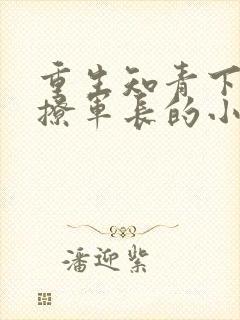 重生知青下
撩军长的小
潘迎紫